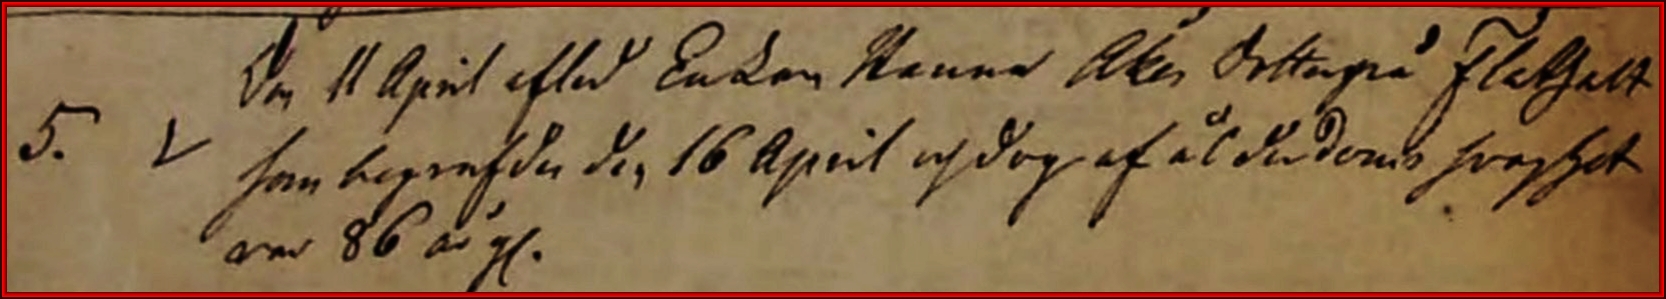 Den 11 April afled Enkan Hanna Åkes Dotter på Flathalt
5. som begrafdes den 16 April och dog af ålderdoms svaghet
var 86 år gl.